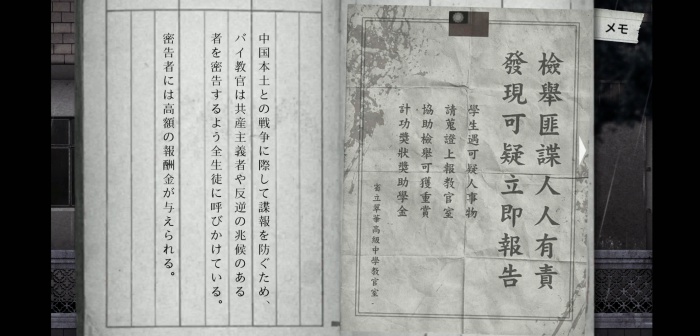 メモ
檢舉匪諜人人有責
發現可疑立即報告
學生遇可疑人事物
請蒐證上報教官室
協助檢舉可獲重賞
計功獎狀獎助學金
省立翠華高級中學教官室
中国本土との戦争に際して諜報を防ぐため、
バイ教官は共産主義者や反逆の兆候のある
者を密告するよう全生徒に呼びかけている。
密告者には高額の報酬金が与えられる。